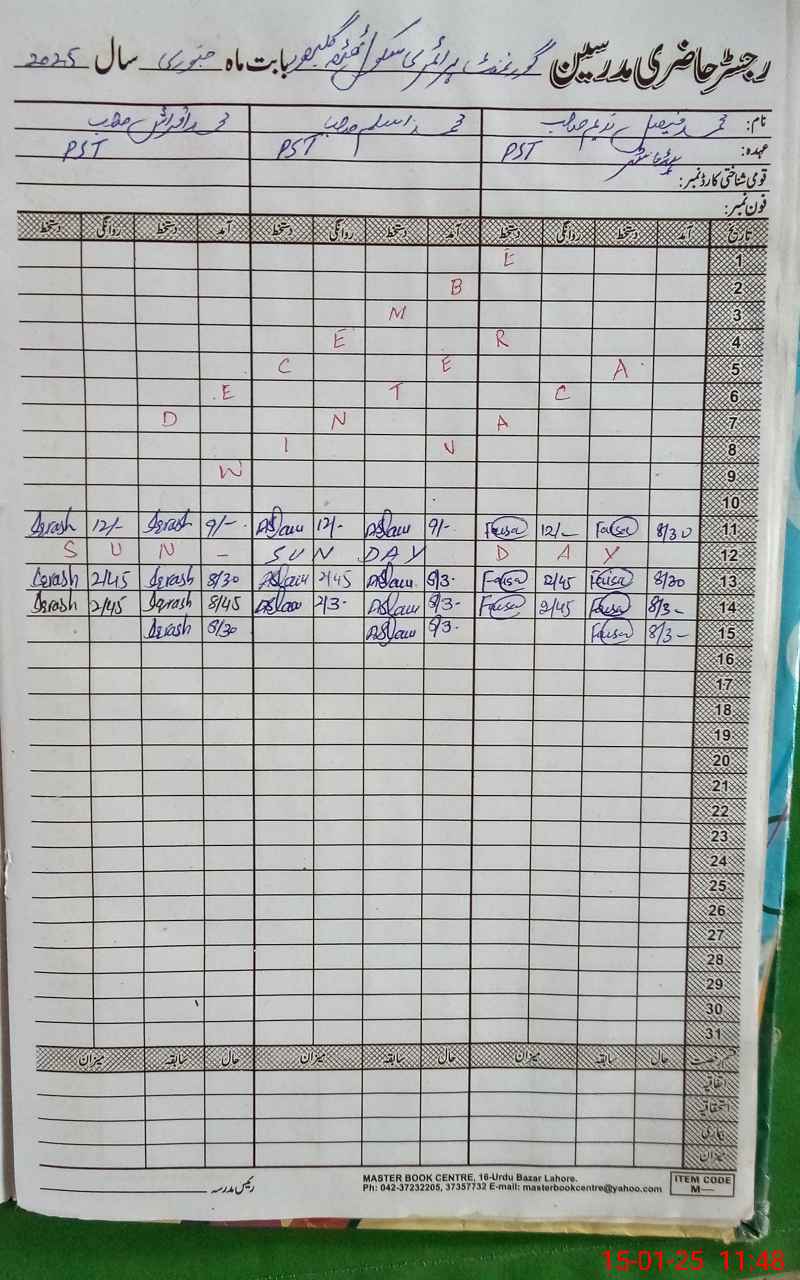 رجسٹر حاضری مدرسین گورنمنٹ پرائمری سکول بابت ماہ جنوری سال 2025
نام: محمد فیصل ندیم صاحب محمد اسلم صاحب محمد اقراش صاحب
عہدہ: PST PST PST
قومی شناختی کارڈ نمبر:
فون نمبر:
تاریخ آمد دستخط روانگی دستخط آمد دستخط روانگی دستخط آمد دستخط روانگی دستخط
1 E
2 B
3 M
4 R E
5 A E C
6 C T E
7 A N D
8 V I
9 W
10
11 8/30 Faisal 12/- Faisal 9/- Aslam 12/- Aslam 9/- Iqrash 12/- Iqrash
12 SUN - SUN DAY DAY
13 8/30 Faisal 2/45 Faisal 8/3- Aslam 2/45 Aslam 8/30 Iqrash 2/45 Iqrash
14 8/3- Faisal 2/45 Faisal 8/3- Aslam 2/3- Aslam 8/45 Iqrash 2/45 Iqrash
15 8/3- Faisal 8/3- Aslam 8/30 Iqrash
16
17
18
19
20
21
22
23
24
25
26
27
28
29
30
31
قسم رخصت حال سابقہ میزان حال سابقہ میزان حال سابقہ میزان
اتفاقیہ
استحقاقیہ
بیماری
میزان
رئیس مدرسہ
MASTER BOOK CENTRE, 16-Urdu Bazar Lahore.
Ph: 042-37232205, 37357732 E-mail: masterbookcentre@yahoo.com
ITEM CODE
M—
15-01-25 11:48